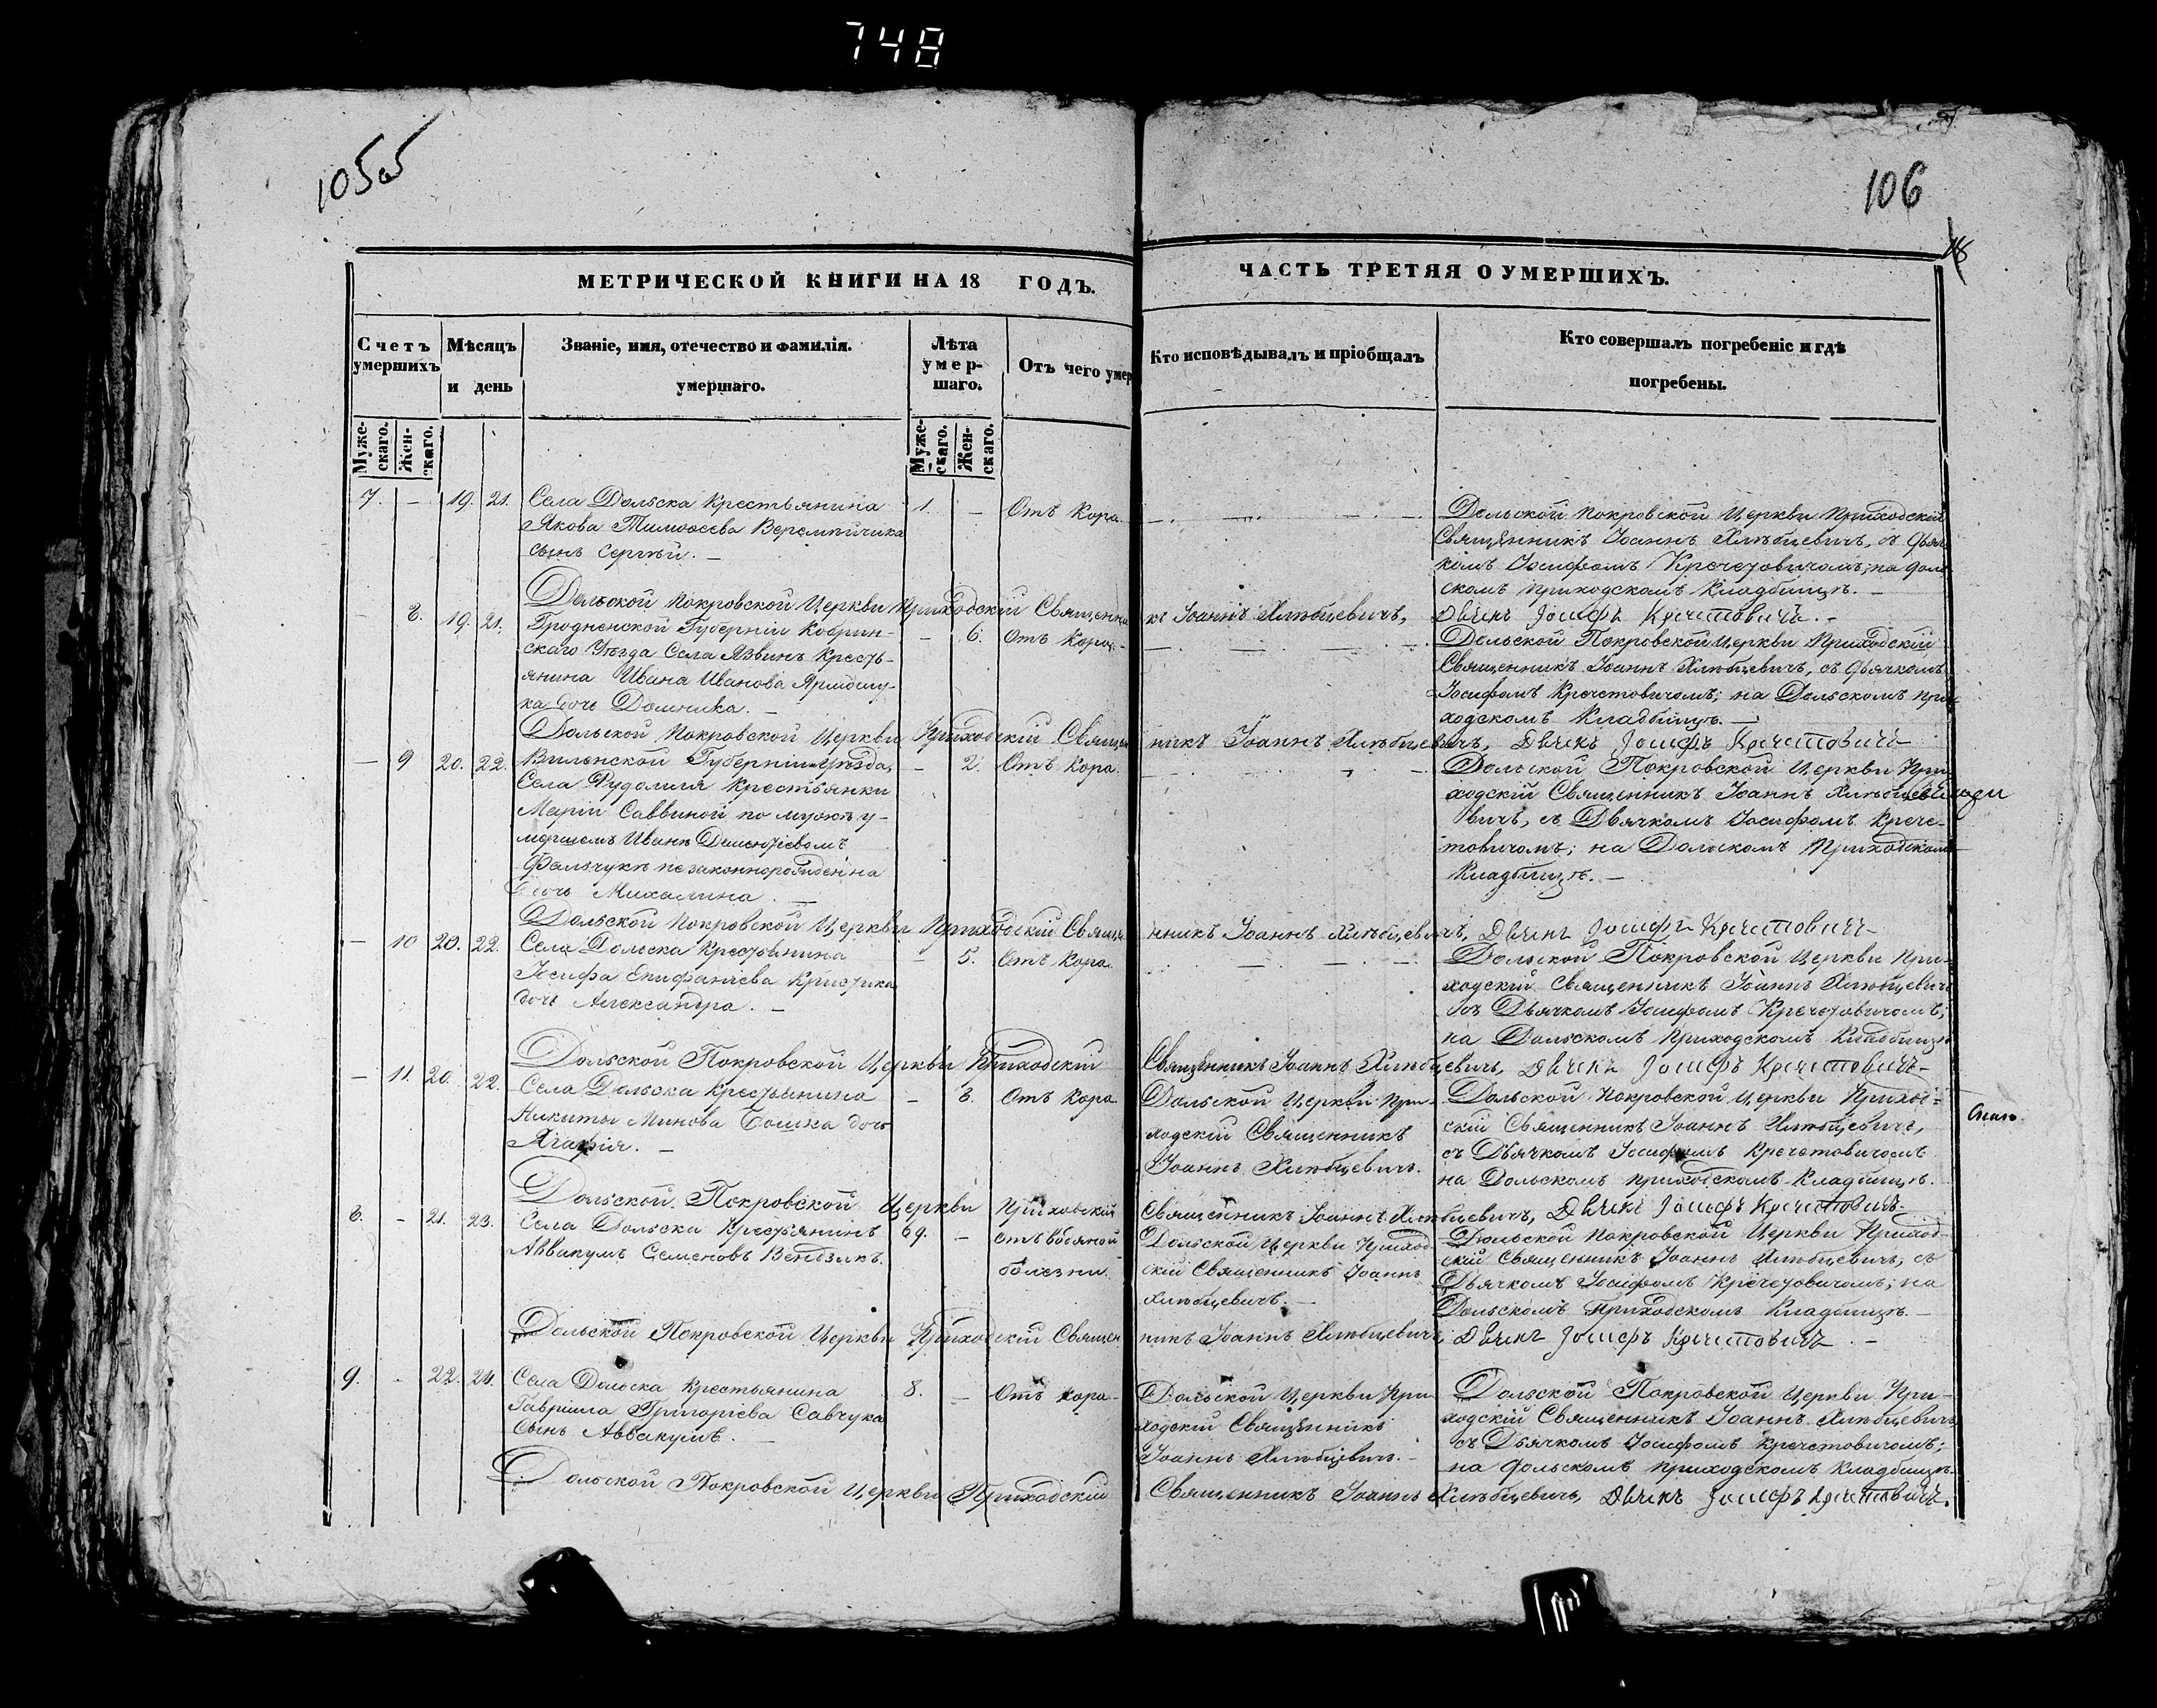 748
105об
106
МЕТРИЧЕСКОЙ КНИГИ НА 18 ГОДЪ.
ЧАСТЬ ТРЕТЯЯ О УМЕРШИХЪ.
Счетъ умершихъ
Мѣсяцъ и день
Званіе, имя, отечество и фамилія.
умершаго.
Лѣта умер-
шаго.
Отъ чего умер
Кто исповѣдывалъ и пріобщалъ
Кто совершалъ погребеніе и гдѣ
погребены.
Муже-
скаго.
Жен-
скаго.
Муже-
скаго.
Жен-
скаго.
7. — 19. 21. Села Дольска Крестьянина 1. — Отъ Кора.
Якова Тимоѳеева Веремѣйчика
сынъ Сергѣй. —
Дольской Покровской Церкви Приходскій
Священникъ Іоаннъ Хлѣбцевичъ, съ Дьяч
комъ Іосифомъ Кречетовичомъ; на Доль
скомъ приходскомъ Кладбищѣ. —
Дольской Покровской Церкви Приходскій Священни
къ Іоаннъ Хлѣбцевичъ, Дьячкъ Іосифъ Кречетовичъ. —
— 8. 19. 21. Гродненской Губерніи Кобрин- — 6. Отъ Кора. —
скаго Уѣзда Села Язвинъ Кресть-
янина Ивана Иванова
ка дочь Домника. —
Дольской Покровской Церкви Приходскій
Священникъ Іоаннъ Хлѣбцевичъ, съ Дьячкомъ
Іосифомъ Кречетовичомъ; на Дольскомъ при
ходскомъ Кладбищѣ. —
Дольской Покровской Церкви Приходскій Священ
никъ Іоаннъ Хлѣбцевичъ, Дьячкъ Іосифъ Кречетовичъ
— 9 20. 22. Виленской Губерніи Уѣзда, — 2. Отъ Кора.
Села Рудомля Крестьянки
Маріи Саввиной по мужѣ у-
мершемъ Иванѣ Дементіевомъ
Фальчукѣ незаконнорожденна
дочь Михалина. —
Дольской Покровской Церкви При
ходскій Священникъ Іоаннъ Хлѣбце
вичъ, съ Дьячкомъ Іосифомъ Крече-
товичомъ; на Дольскомъ Приходскомъ
Кладбищѣ. —
Дольской Покровской Церкви Приходскій Священ
нникъ Іоаннъ Хлѣбцевичъ, Дьячкъ Іосифъ Кречетовичъ
— 10 20. 22. Села Дольска Крестьянина — 5. Отъ Кора.
Іосифа Епифаніева
дочь Александра. —
Дольской Покровской Церкви При-
ходскій Священникъ Іоаннъ Хлѣбцевичъ
съ Дьячкомъ Іосифомъ Кречетовичомъ;
на Дольскомъ Приходскомъ Кладбищѣ
Дольской Покровской Церкви Приходскій
Священникъ Іоаннъ Хлѣбцевичъ, Дьячкъ Іосифъ Кречетовичъ —
— 11. 20. 22. Села Дольска Крестьянина — 8. Отъ Кора
Никиты Минова Бошка дочь
Агафія. —
Дольской Церкви При-
ходскій Священникъ
Іоаннъ Хлѣбцевичъ.
Дольской Покровской Церкви Приход=
скій Священникъ Іоаннъ Хлѣбцевичъ,
съ Дьячкомъ Іосифомъ Кречетовичомъ
на Дольскомъ приходскомъ Кладбищѣ.
Дольской Покровской Церкви Приходскій
Священникъ Іоаннъ Хлѣбцевичъ, Дьячкъ Іосифъ Кречетовичъ
8. — 21. 23. Села Дольска Крестьянинъ 69. — отъ водяной
Аввакумъ Семеновъ Вендзикъ.
болезни.
Дольской Церкви Приход
скій Священникъ Іоаннъ
Хлѣбцевичъ. —
Дольской Покровской Церкви Приход-
скій Священникъ Іоаннъ Хлѣбцевичъ, съ
Дьячкомъ Іосифомъ Кречетовичомъ; на
Дольскомъ Приходскомъ Кладбищѣ. —
Дольской Покровской Церкви Приходскій Священ
никъ Іоаннъ Хлѣбцевичъ, Дьячкъ Іосифъ Кречетовичъ. —
9. — 22. 24. Села Дольска Крестьянина 8. — Отъ Кора —
Гавріила Григоріева Савчука
Сынъ Аввакумъ. —
Дольской Церкви При
ходскій Священникъ
Іоаннъ Хлѣбцевичъ. —
Дольской Покровской Церкви При-
ходскій Священникъ Іоаннъ Хлѣбцевичъ
съ Дьячкомъ Іосифомъ Кречетовичомъ;
на Дольскомъ приходскомъ Кладбищѣ.
Дольской Покровской Церкви Приходскій
Священникъ Іоаннъ Хлѣбцевичъ, Дьячкъ Іосифъ Кречетовичъ.